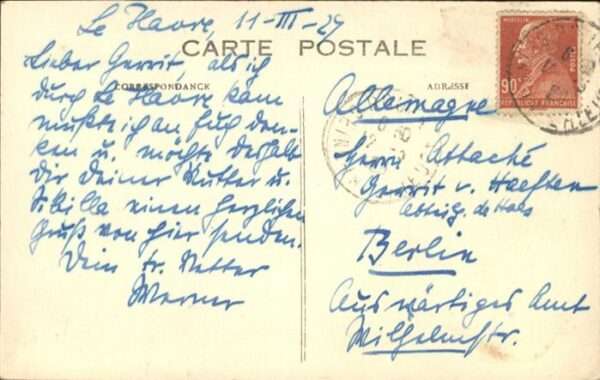 Le Havre, 11-III-29
CARTE POSTALE
CORRESPONDANCE
Lieber Gerrit, als ich
durch Le Havre kam
mußte ich an Euch den-
ken u. möchte deshalb
Dir Deiner Mutter u.
einen herzlichen
Gruß von hier senden.
Dein tr. Vetter
Werner
ADRESSE
Allemagne
Herrn Attaché
Gerrit v. Haeften
Berlin
Auswärtiges Amt
Wilhelmstr.
BERTHELOT
90c
POSTES
RÉPUBLIQUE FRANÇAISE